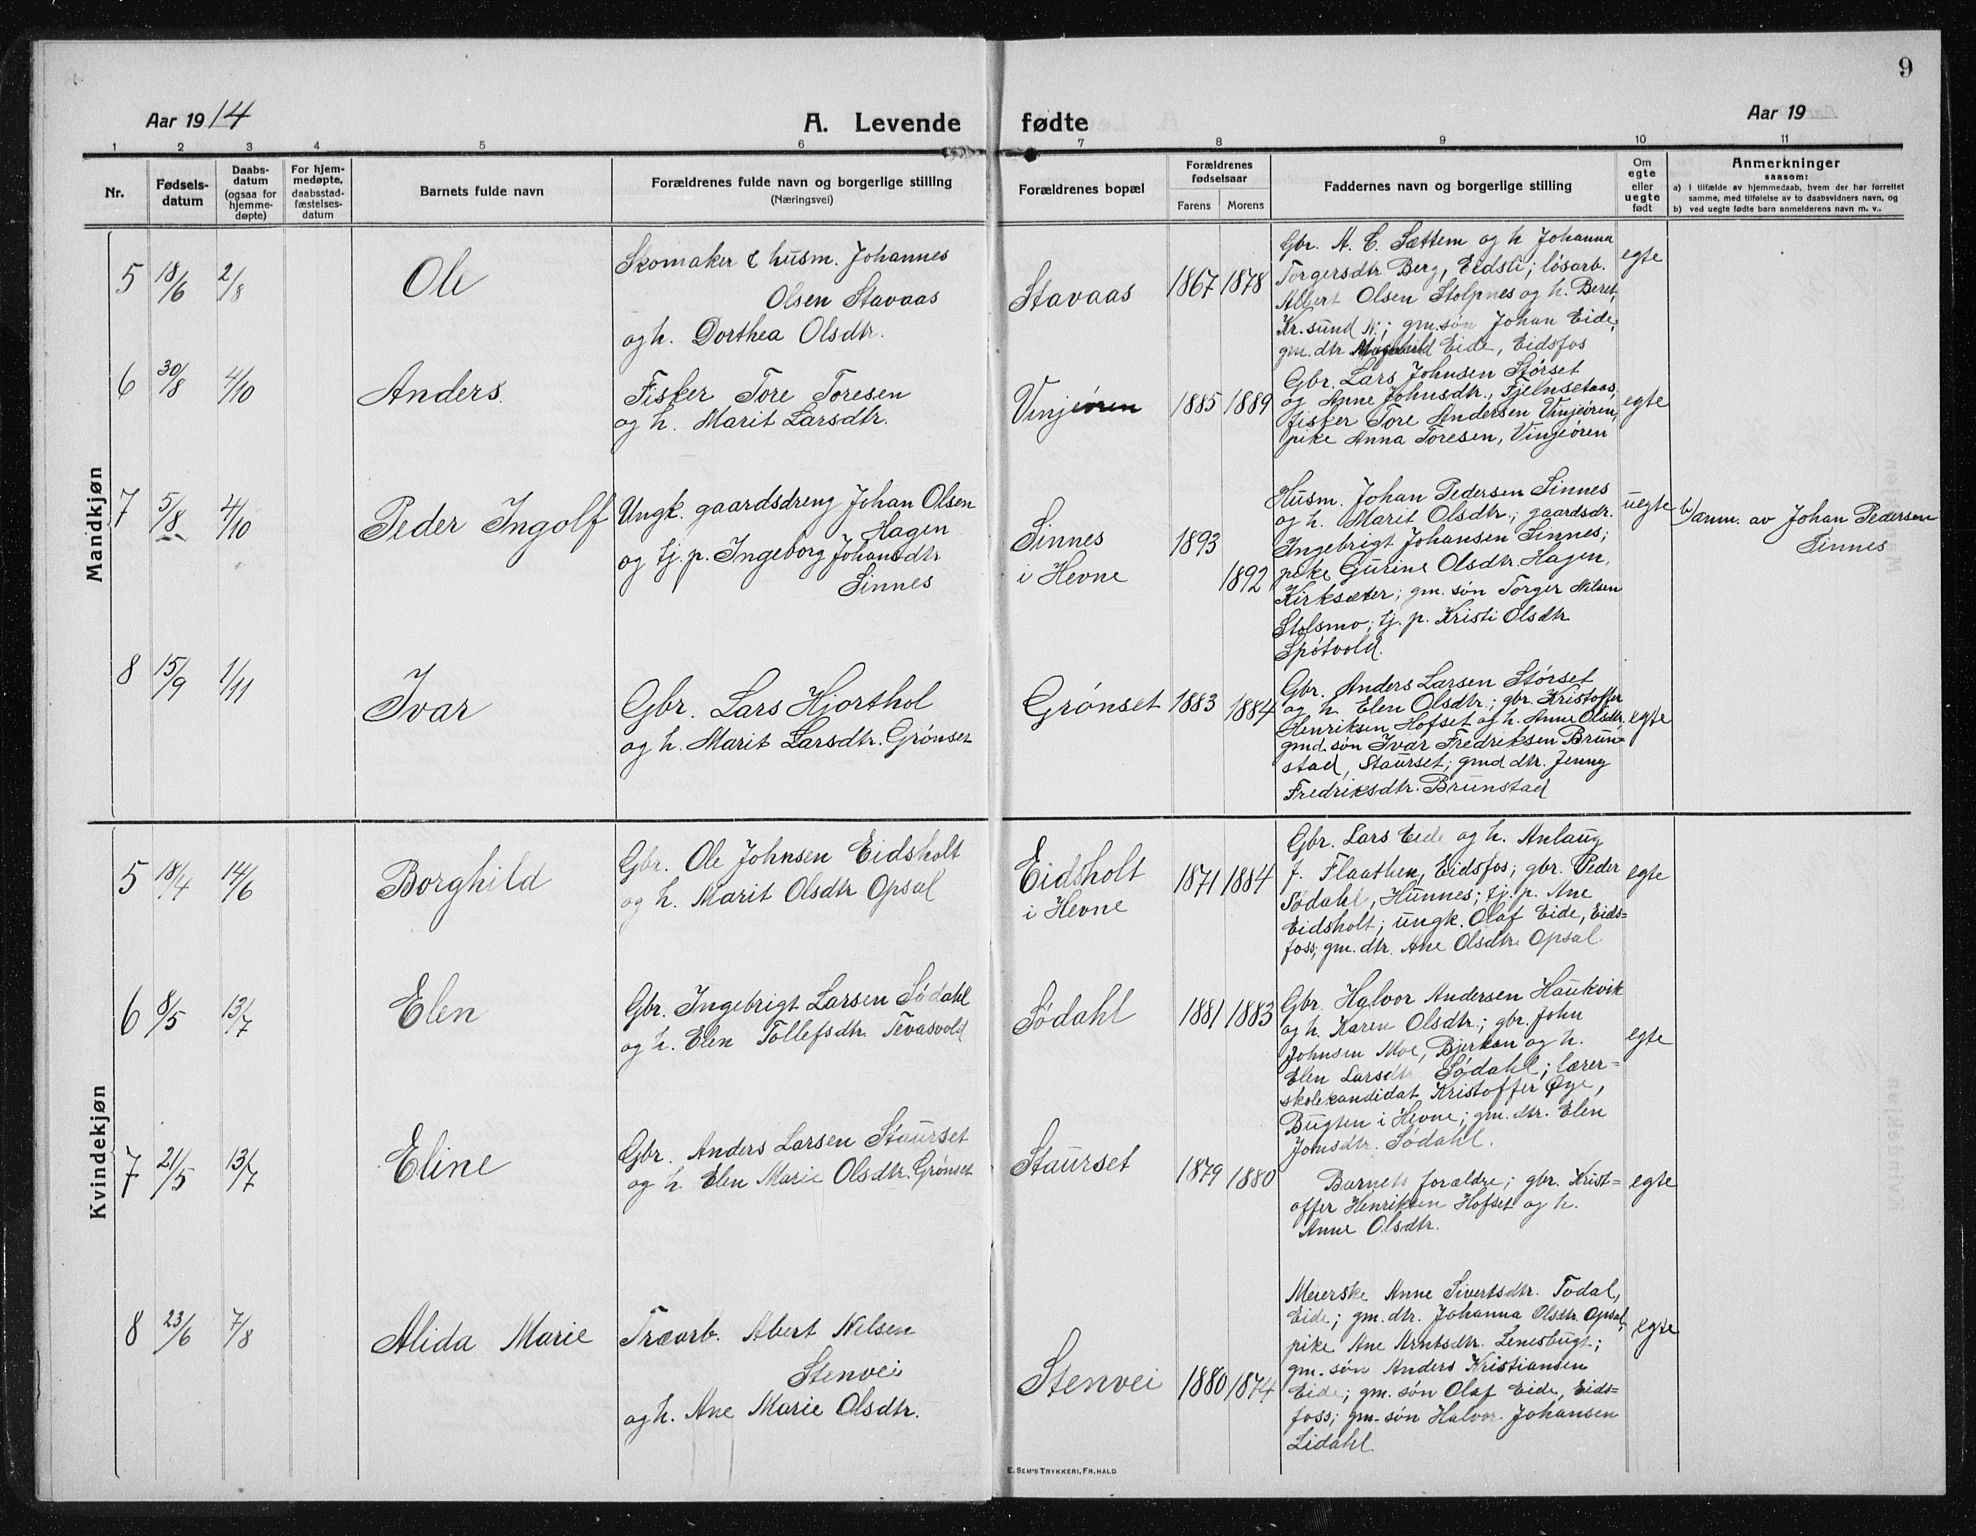 9
Aar 1914
A. Levende fødte
Aar 19
1 2 3 4 5 6 7 8 9 10 11
Nr.
Fødsels-
datum
Daabs-
datum
(ogsaa for
hjemme-
døpte)
For hjem-
medøpte,
daabsstad-
fæstelses-
datum
Barnets fulde navn
Forældrenes fulde navn og borgerlige stilling
(Næringsvei)
Forældrenes bopæl
Forældrenes
fødselsaar
Farens Morens
Faddernes navn og borgerlige stilling
Om
egte
eller
uegte
født
Anmerkninger
saasom:
a) i tilfælde av hjemmedaab, hvem der har forrettet
samme, med tilføielse av to daabsvidners navn, og
b) ved uegte fødte barn anmelderens navn m. v..
Mandkjøn
5 18/6 2/8 Ole
Skomaker & husm. Johannes
Olsen Stavaas
og h. Dorthea Olsdtr.
Stavaas 1867 1878
Gbr. A. C. Sættem og h Johanna
Torgersdtr Berg, Eidsli; løsarb.
Albert Olsen Stolpnes og h. Beret,
Kr.sund N.; gm.søn Johan Eide,
gm. dtr Eide, Eidsfos
egte
6 30/8 4/10 Anders
Fisker Tore Toresen
og h. Marit Larsdtr.
Vinjeøren 1885 1889
Gbr. Lars Johnsen Størset
og Anne Johnsdtr., Fjelnsetaas,
fisker Tore Andersen Vinjeøren,
pike Anna Toresen, Vinjeøren
egte
7 5/8 4/10 Peder Ingolf
Ungk. gaardsdreng Johan Olsen
Hagen
og tj. p. Ingeborg Johansdtr
Sinnes
Sinnes
i Hevne
1893 1892
Husm. Johan Pedersen Sinnes
og h. Marit Olsdtr.; gaardsdr.
Ingebrigt Johansen Sinnes;
pike Gurine Olsdtr. Hagen,
Kirksæter; gm. søn Torger Nilsen
Stolsmo; tj. p. Kristi Olsdtr
Spøtvold.
uegte
b) anm. av Johan Pedersen
Sinnes
8 15/9 1/11 Ivar
Gbr. Lars Hjorthol
og h. Marit Larsdtr. Grønset
Grønset 1883 1884
Gbr. Anders Larsen Størset
og h. Elen Olsdtr.; gbr. Kristoffer
Henriksen Hofset og h. Anne Olsdtr.
gmd.søn Ivar Fredriksen Brun-
stad, Staurset; gmd dtr. Jenny
Fredriksdtr. Brunstad
egte
Kvindekjøn
5 18/4 14/6 Borghild
Gbr. Ole Johnsen Eidsholt
og h. Marit Olsdtr Opsal
Eidsholt
i Hevne
1871 1884
Gbr. Lars Eide og h. Anlaug
f. Flaathen, Eidsfos; gbr. Peder
Sødahl, Hunnes; tj. p. Ane
Eidsholt; ungk. Olaf Eide, Eids=
foss; gm. dtr. Ane Olsdtr. Opsal
egte
6 8/5 13/7 Elen
Gbr. Ingebrigt Larsen Sødahl
og h. Elen Tollefsdtr. Tevasvold
Sødahl 1881 1883
Gbr. Halvor Andersen Haukvik
og h. Karen Olsdtr.; gbr. John
Johnsen Moe, Bjerkan og h.
Elen Larsdtr Sødahl; lærer-
skolekandidat Kristoffer Øye,
Bugten i Hevne; gm. dtr. Elen
Johnsdtr. Sødahl.
egte
7 21/5 13/7 Eline
Gbr. Anders Larsen Staurset
og h. Elen Marie Olsdtr. Grønset
Staurset 1879 1880
Barnets forældre; gbr. Krist=
offer Henriksen Hofset og h.
Anne Olsdtr.
egte
8 23/6 7/8 Alida Marie
Træarb. Abert Nilsen
Stenvei
og h. Ane Marie Olsdtr.
Stenvei 1880 1874
Meierske Anne Sivertsdtr. Todal,
Eide; gm. dtr. Johanna Olsdtr. Opsal,
pike Ane Arntsdtr. Lenesbugt;
gm. søn Anders Kristiansen
Eide; gm. søn Olaf Eide, Eids-
foss; gm. søn Halvor Johansen
Lidahl.
egte
E. SEM'S TRYKKERI, FR.HALD